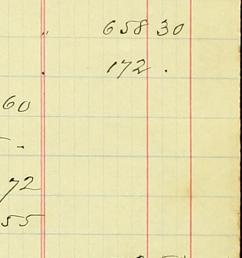 " 658 30
. 172 .
60
- .
72
55